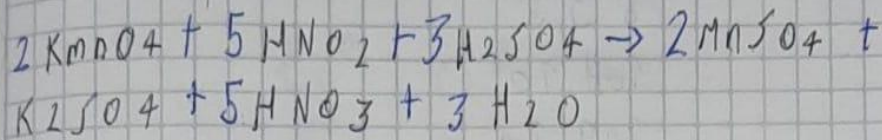 2 KmnO4 + 5 HNO2 + 3H2SO4 → 2 MnSO4 +
K2SO4 + 5HNO3 + 3 H2O